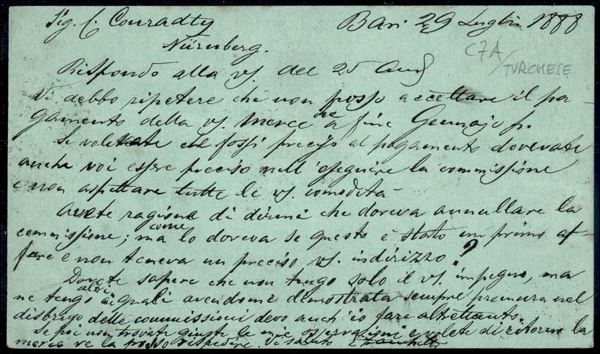 Sig. C. Conradty Bari 29 Luglio 1888
Nürnberg. C7A/
TURCHESE
Rispondo alla vs. del 25 and
Vi debbo ripetere che non posso accettare il pa-
gamento della vs. merce che a fine Gennajo p.
Se volevate che fossi preciso al pagamento dovevate
anche voi essere preciso nell'eseguire la commissione
e non aspettare tutte le vs. comodità
Avete ragione di dirmi che doveva annullare la
commissione; ma come lo doveva se questo è stato un primo af-
fare e non teneva un preciso vs. indirizzo?
Dovete sapere che non tengo solo il vs. impegno, ma
ne tengo altri eguali avendomi dimostrata sempre premura nel
disbrigo delle commissioni devo anch'io fare altrettanto.
Se poi non trovate giuste le mie osservazioni e volete di ritorno la
merce ve la posso rispedire. Vi saluto